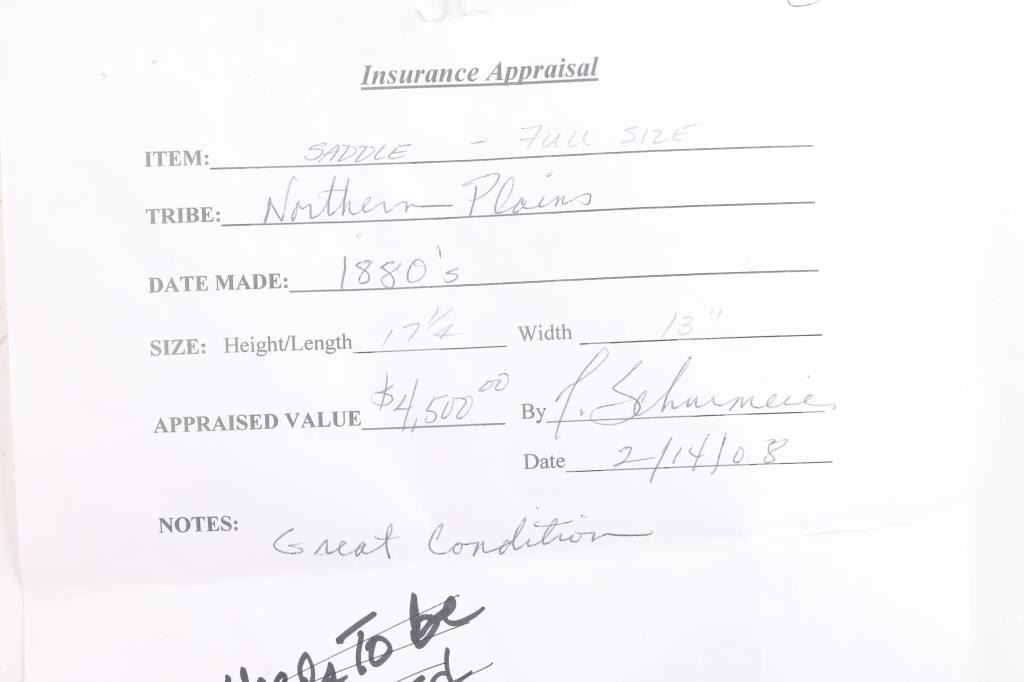 Insurance Appraisal
ITEM: SADDLE - FULL SIZE
TRIBE: Northern Plains
DATE MADE: 1880's
SIZE: Height/Length 17 1/4 Width 13"
APPRAISED VALUE $4,500 00 By P. Schurmeier
Date 2/14/08
NOTES: Great Condition
To be